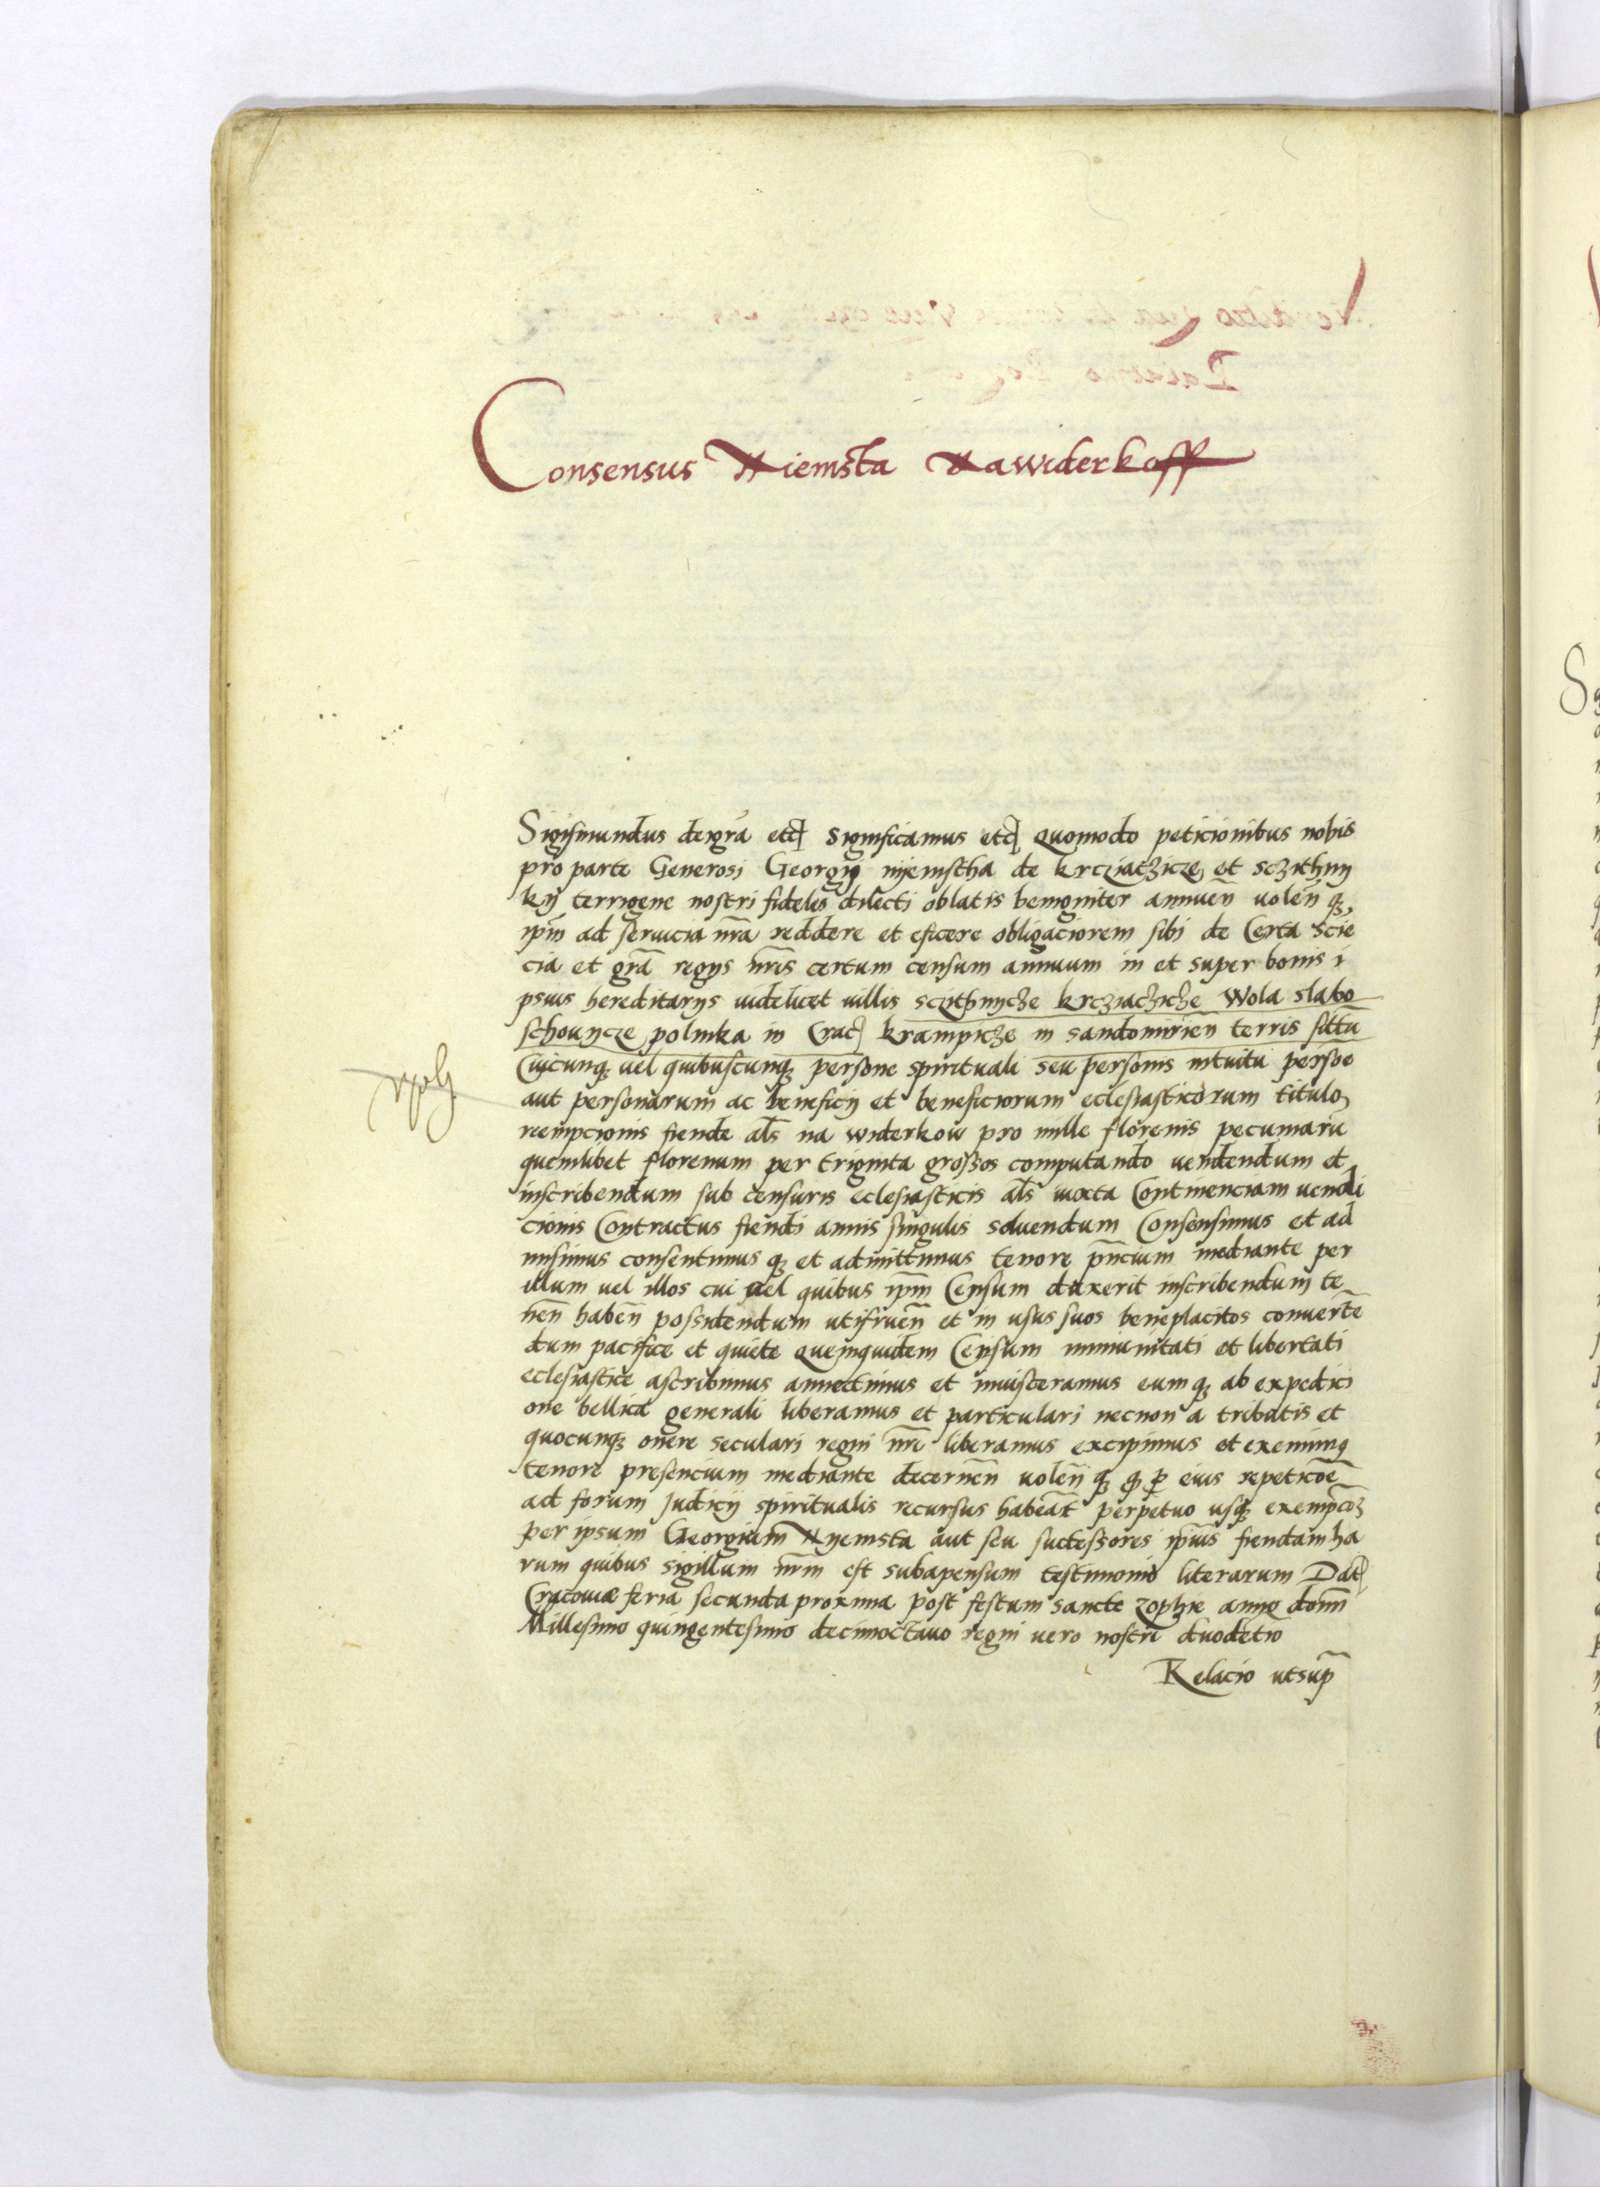 Consensus Niemsta Nawiderkoff
Sigismundus dei gra etc Significamus etc Quomodo peticionibus nobis
pro parte Generosi Georgij nijemstha de krcziaczicze et sczithny
kÿ terrigene nostri fidelis dilecti oblatis benigniter annuen volen q
ipm ad seruicia nra reddere et eficere obligaciorem sibi de Certa scie
cia et gra regÿs nris certum censum annuum in et super bonis i
psius hereditarÿs videlicet villis sczithnycze krcziaczicze Wola slabo
schouycze polnika in Crac krampicze in sandomirien terris situ
Cuicunq uel quibuscunq persone spirituali seu personis intuitu persoe
aut personarum ac beneficÿ et beneficiorum eclesiasticorum titulo
reempcionis fiende als na widerkow pro mille florenis pecuniaru
quemlibet florenum per triginta grossos computando vendendum et
inscribendum sub censuris eclesiasticis als iuxta Continenciam vendi
cionis Contractus fiendi annis singulis soluendum Consensimus et ad
misimus consentimus q et admittimus tenore pncium mediante per
illum uel illos cui uel quibus ipm Censum duxerit inscribendum te
nen haben possidendum utifruen et in usus suos beneplacitos conuerte
dum pacifice et quiete Quemquidem Censum immunitati et libertati
eclesiastice ascribimus annectimus et inuisceramus eum q ab expedici
one bellica generali liberamus et particulari necnon a tributis et
quocunq onere seculari regni nri liberamus excipimus et eximimq
tenore presencium mediante decernen volen q q p eius repeticoe
ad forum Judicij spiritualis recursus habeat perpetuo usq exempcoz
per ipsum Georgium Nyemsta aut seu successores ipius fiendam ha
rum quibus sigillum nrm est subapensum testimonio literarum Dat
Cracouiæ feria secunda proxima post festum sancte zophie anno domi
Millesimo quingentesimo decimoctauo regni vero nostri duodecio
Relacio utsup